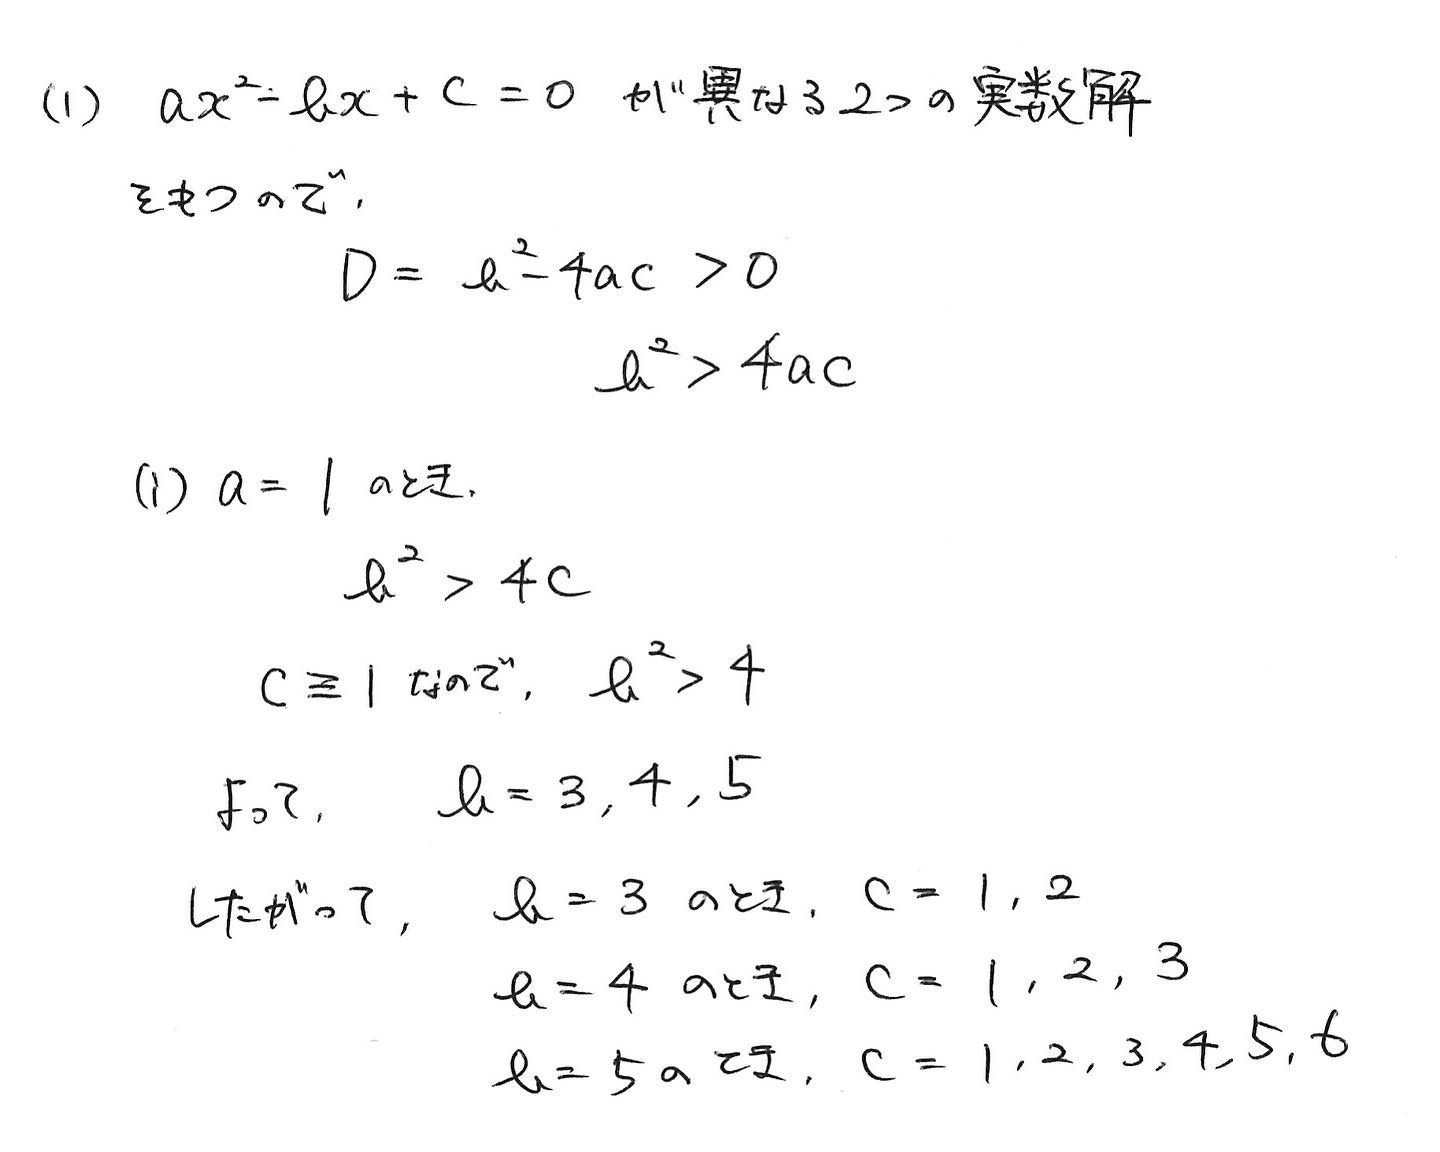 (1) ax²-bx+c=0 が異なる2つの実数解
をもつので,
D= b²-4ac >0
b²> 4ac
(i) a= 1 のとき.
b² > 4c
c≧1 なので, b²> 4
よって, b= 3, 4, 5
したがって, b=3 のとき, c= 1, 2
b=4 のとき, c= 1, 2, 3
b=5のとき, c= 1, 2, 3, 4, 5, 6